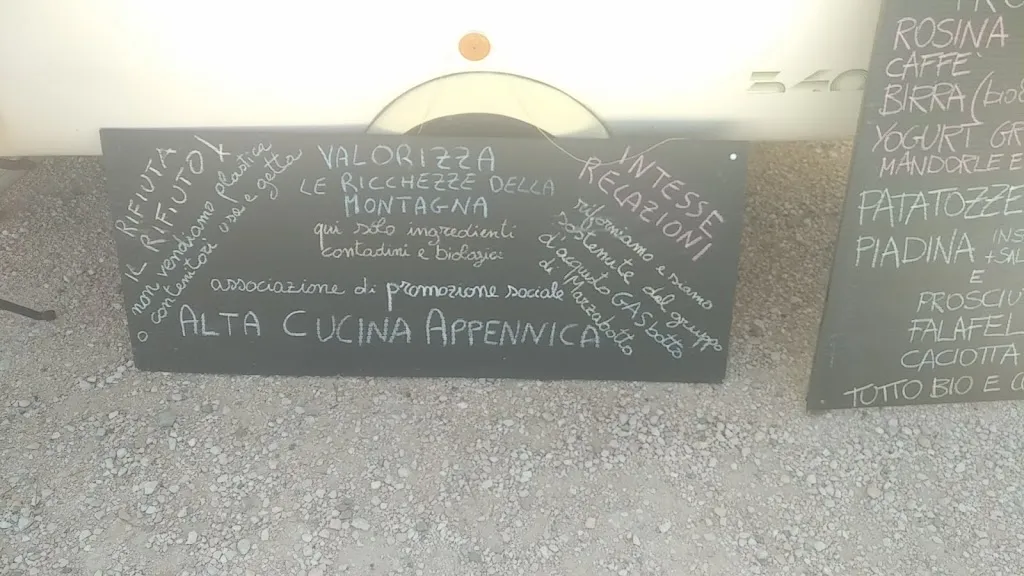 RIFIUTA
IL RIFIUTO!
non vendiamo plastica
o contenitori usa e getta
VALORIZZA
LE RICCHEZZE DELLA
MONTAGNA
qui solo ingredienti
contadini e biologici
INTESSE
RELAZIONI
riforniamo e siamo
sostenute dal gruppo
d'acquisto GASbotto
di Marzabotto
associazione di promozione sociale
ALTA CUCINA APPENNICA
340
ROSINA
CAFFE'
BIRRA (bio
YOGURT GR
MANDORLE E
PATATOZZE
PIADINA INS
+SAL
E
PROSCIU
FALAFEL
CACIOTTA
TUTTO BIO E